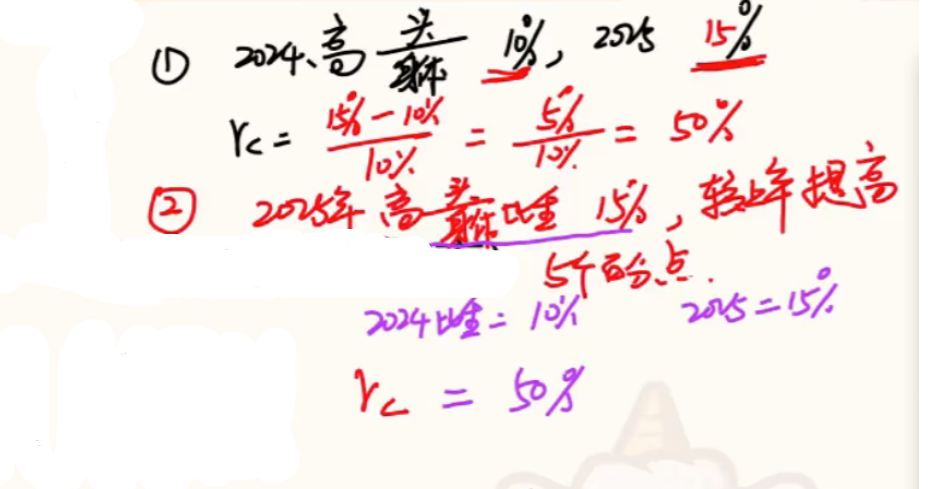 ① 2024、高 头/身体 10%, 2025 15%
r_c = (15%-10%)/10% = 5%/10% = 50%
② 2025年 高 头/身体 比重 15%, 较上年提高
5个百分点.
2024比重 = 10% 2025 = 15%
r_c = 50%